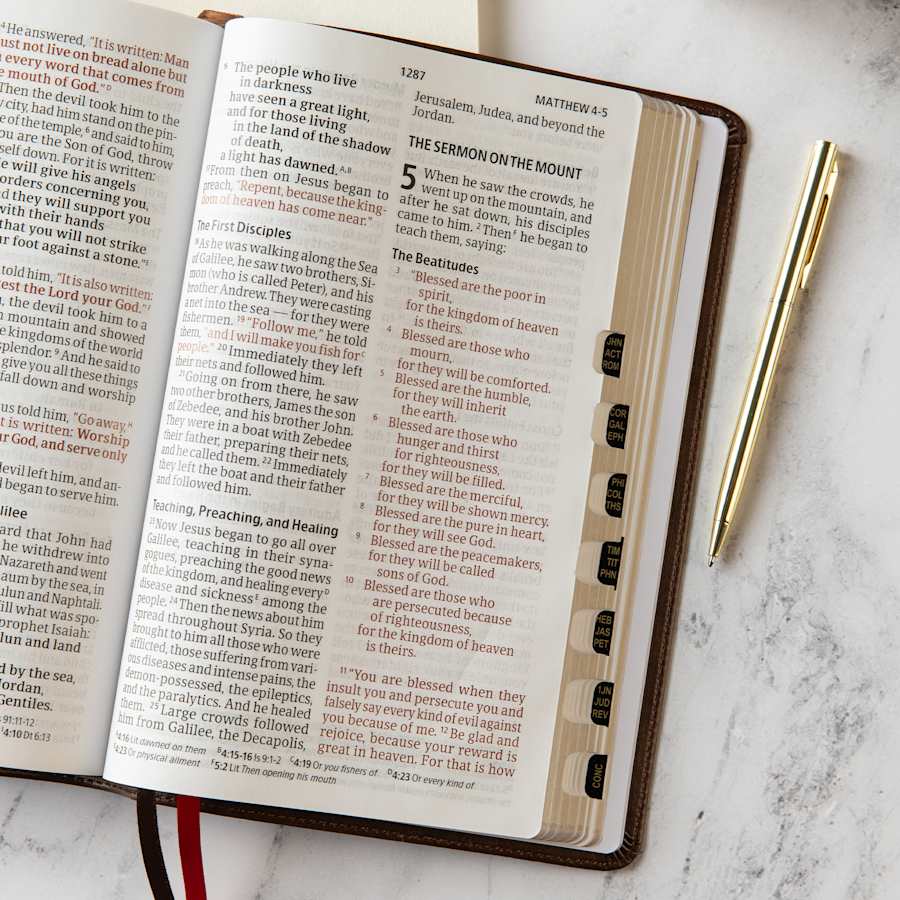 4 He answered, "It is written: Man
ust not live on bread alone but
every word that comes from
e mouth of God." D
Then the devil took him to the
city, had him stand on the pin-
e of the temple, 6 and said to him,
ou are the Son of God, throw
self down. For it is written:
e will give his angels
orders concerning you,
d they will support you
with their hands
that you will not strike
ur foot against a stone." E
told him, "It is also written:
test the Lord your God." F
, the devil took him to a
mountain and showed
kingdoms of the world
splendor. 9 And he said to
give you all these things
fall down and worship
us told him, "Go away,
t is written: Worship
ur God, and serve only
devil left him, and an-
began to serve him.
lilee
ard that John had
he withdrew into
Nazareth and went
aum by the sea, in
ulun and Naphtali.
fill what was spo-
prophet Isaiah:
lun and land
d by the sea,
Jordan,
Gentiles.
s 91:11-12
4:10 Dt 6:13
The people who live
in darkness
have seen a great light,
and for those living
in the land of the shadow
of death,
a light has dawned. A,B
17 From then on Jesus began to
preach, "Repent, because the king-
dom of heaven has come near."
The First Disciples
18 As he was walking along the Sea
of Galilee, he saw two brothers, Si-
mon (who is called Peter), and his
brother Andrew. They were casting
a net into the sea — for they were
fishermen. 19 "Follow me," he told
them, "and I will make you fish for C
people." 20 Immediately they left
their nets and followed him.
21 Going on from there, he saw
two other brothers, James the son
of Zebedee, and his brother John.
They were in a boat with Zebedee
their father, preparing their nets,
and he called them. 22 Immediately
they left the boat and their father
and followed him.
Teaching, Preaching, and Healing
23 Now Jesus began to go all over
Galilee, teaching in their syna-
gogues, preaching the good news
of the kingdom, and healing every D
disease and sickness E among the
people. 24 Then the news about him
spread throughout Syria. So they
brought to him all those who were
afflicted, those suffering from vari-
ous diseases and intense pains, the
demon-possessed, the epileptics,
and the paralytics. And he healed
them. 25 Large crowds followed
him from Galilee, the Decapolis,
1287
MATTHEW 4-5
Jerusalem, Judea, and beyond the
Jordan.
THE SERMON ON THE MOUNT
5 When he saw the crowds, he
went up on the mountain, and
after he sat down, his disciples
came to him. 2 Then F he began to
teach them, saying:
The Beatitudes
3 "Blessed are the poor in
spirit,
for the kingdom of heaven
is theirs.
4 Blessed are those who
mourn,
for they will be comforted.
5 Blessed are the humble,
for they will inherit
the earth.
6 Blessed are those who
hunger and thirst
for righteousness,
for they will be filled.
7 Blessed are the merciful,
for they will be shown mercy.
8 Blessed are the pure in heart,
for they will see God.
9 Blessed are the peacemakers,
for they will be called
sons of God.
10 Blessed are those who
are persecuted because
of righteousness,
for the kingdom of heaven
is theirs.
11 "You are blessed when they
insult you and persecute you and
falsely say every kind of evil against
you because of me. 12 Be glad and
rejoice, because your reward is
great in heaven. For that is how
A 4:16 Lit dawned on them B 4:15-16 Is 9:1-2 C 4:19 Or you fishers of D 4:23 Or every kind of
E 4:23 Or physical ailment F 5:2 Lit Then opening his mouth
JHN
ACT
ROM
COR
GAL
EPH
PHI
COL
THS
TIM
TIT
PHN
HEB
JAS
PET
1JN
JUD
REV
CONC